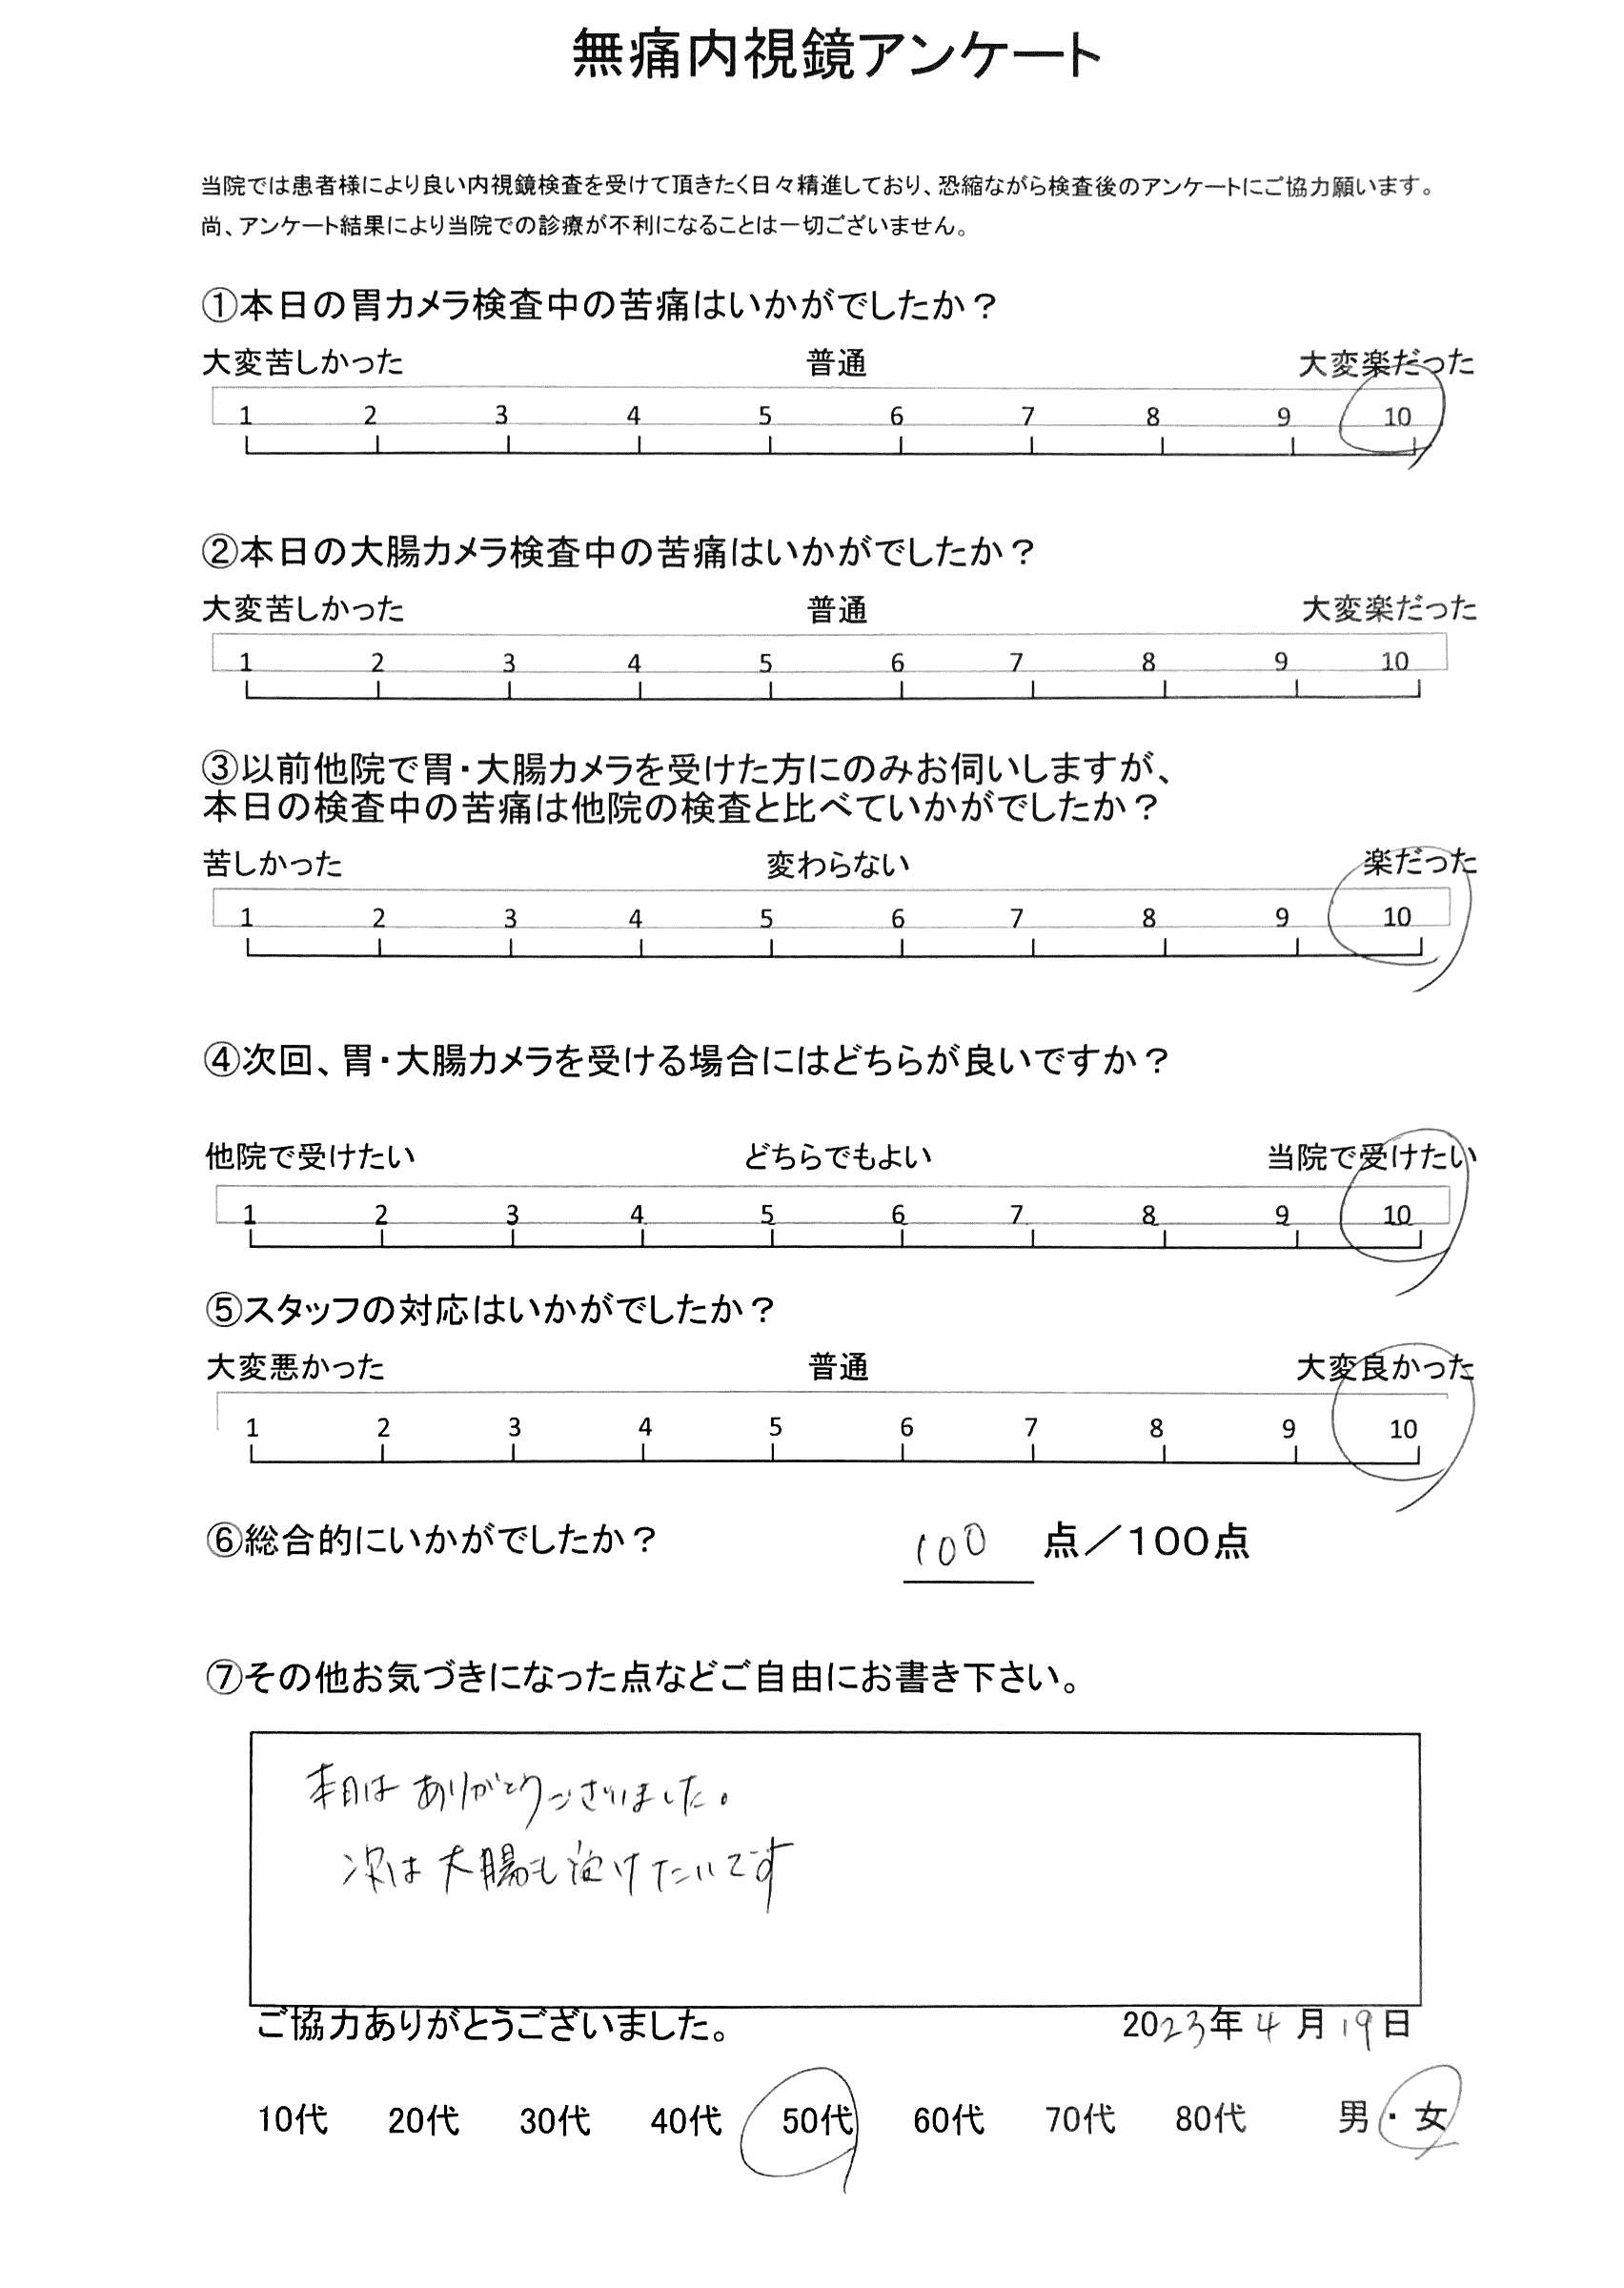 無痛内視鏡アンケート
当院では患者様により良い内視鏡検査を受けて頂きたく日々精進しており、恐縮ながら検査後のアンケートにご協力願います。
尚、アンケート結果により当院での診療が不利になることは一切ございません。
①本日の胃カメラ検査中の苦痛はいかがでしたか？
大変苦しかった 普通 大変楽だった
1 2 3 4 5 6 7 8 9 10
②本日の大腸カメラ検査中の苦痛はいかがでしたか？
大変苦しかった 普通 大変楽だった
1 2 3 4 5 6 7 8 9 10
③以前他院で胃・大腸カメラを受けた方にのみお伺いしますが、
本日の検査中の苦痛は他院の検査と比べていかがでしたか？
苦しかった 変わらない 楽だった
1 2 3 4 5 6 7 8 9 10
④次回、胃・大腸カメラを受ける場合にはどちらが良いですか？
他院で受けたい どちらでもよい 当院で受けたい
1 2 3 4 5 6 7 8 9 10
⑤スタッフの対応はいかがでしたか？
大変悪かった 普通 大変良かった
1 2 3 4 5 6 7 8 9 10
⑥総合的にいかがでしたか？ 100 点／100点
⑦その他お気づきになった点などご自由にお書き下さい。
本日はありがとうございました。
次は大腸も受けたいです
ご協力ありがとうございました。 2023年4月19日
10代 20代 30代 40代 50代 60代 70代 80代 男・女